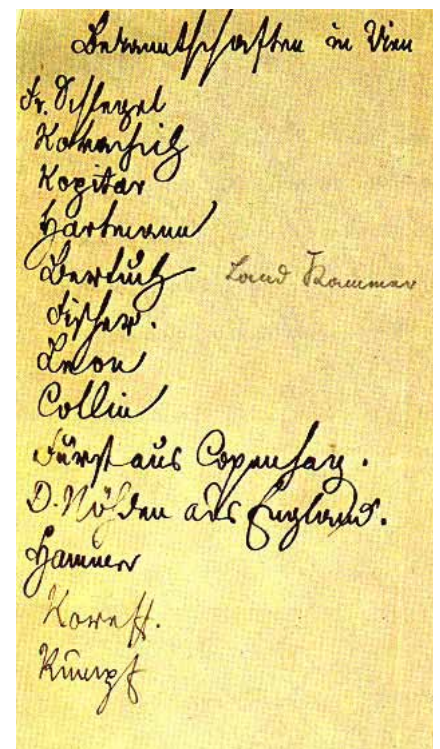 Bekanntschaften in Wien
Fr. Schlegel
Kopitar
Hartmann
Bertuch Land Kammer
Fischer.
Leon
Collin
Fürst aus Copenhag.
D. Nöhden aus England.
Hammer
Koreff.
Rumpf